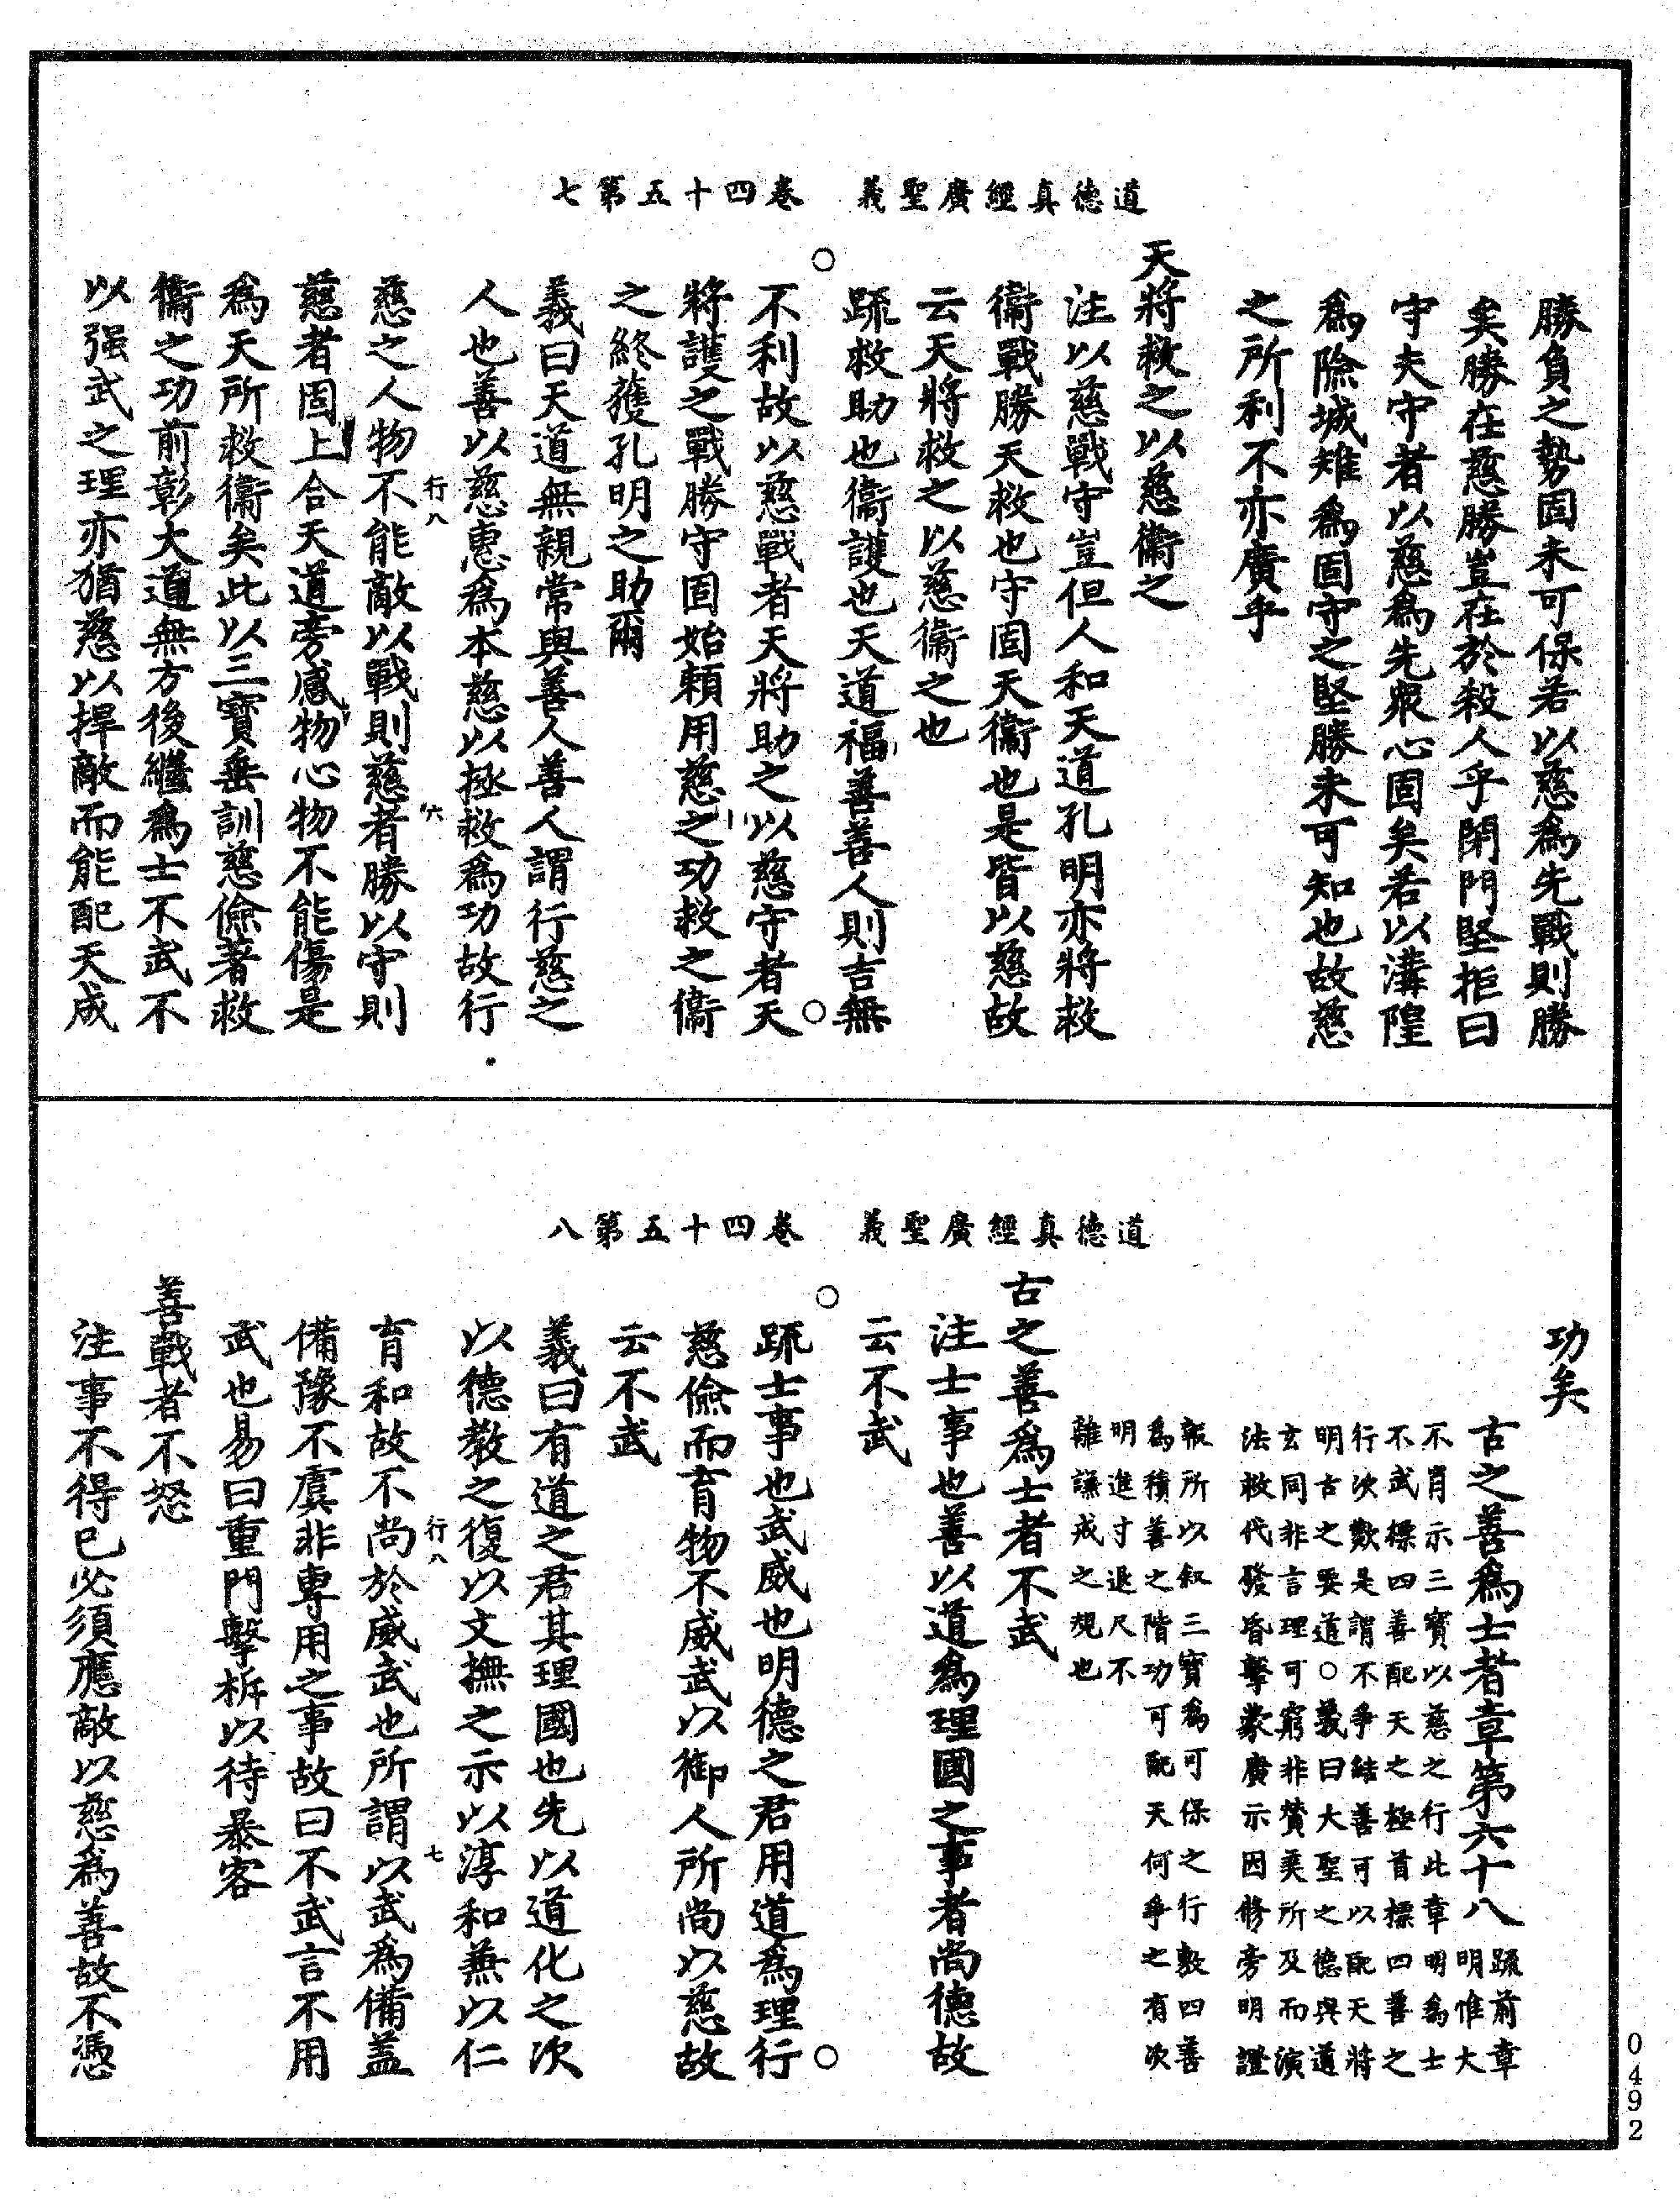 道德真經廣聖義　卷四十五第七
勝負之勢固未可保若以慈爲先戰則勝
矣勝在慈勝豈在於殺人乎閉門堅拒曰
守夫守者以慈爲先衆心固矣若以溝隍
爲險城雉爲固守之堅勝未可知也故慈
之所利不亦廣乎
天將救之以慈衛之
注以慈戰守豈但人和天道孔明亦將救
衛戰勝天救也守固天衛也是皆以慈故
云天將救之以慈衛之也
○
疏救助也衛護也天道福善善人則吉無
○
不利故以慈戰者天將助之以慈守者天
將護之戰勝守固始賴用慈之功救之衛
之終獲孔明之助爾
義曰天道無親常與善人善人謂行慈之
人也善以慈惠爲本慈以拯救爲功故行
行八　六
慈之人物不能敵以戰則慈者勝以守則
慈者固上合天道旁感物心物不能傷是
爲天所救衛矣此以三寶垂訓慈儉著救
衛之功前彰大道無方後繼爲士不武不
以强武之理亦猶慈以捍敵而能配天成
道德真經廣聖義　卷四十五第八
功矣
古之善爲士者章第六十八疏前章
明惟大
不肖示三寶以慈之行此章明爲士
不武標四善配天之極首標四善之
行次歎是謂不爭結善可以配天將
明古之要道○義曰大聖之德與道
玄同非言理可窮非贊美所及而演
法救代發昏擊蒙廣示因修旁明證
報所以叙三寶爲可保之行敷四善
爲積善之階功可配天何爭之有次
明進寸退尺不
離謙戒之規也
古之善爲士者不武
注士事也善以道爲理國之事者尚德故
云不武
○
疏士事也武威也明德之君用道爲理行
○
慈儉而育物不威武以御人所尚以慈故
云不武
義曰有道之君其理國也先以道化之次
以德教之復以文撫之示以淳和兼以仁
行八　七
育和故不尚於威武也所謂以武爲備蓋
備豫不虞非專用之事故曰不武言不用
武也易曰重門擊柝以待暴客
善戰者不怒
注事不得已必須應敵以慈爲善故不憑
0492